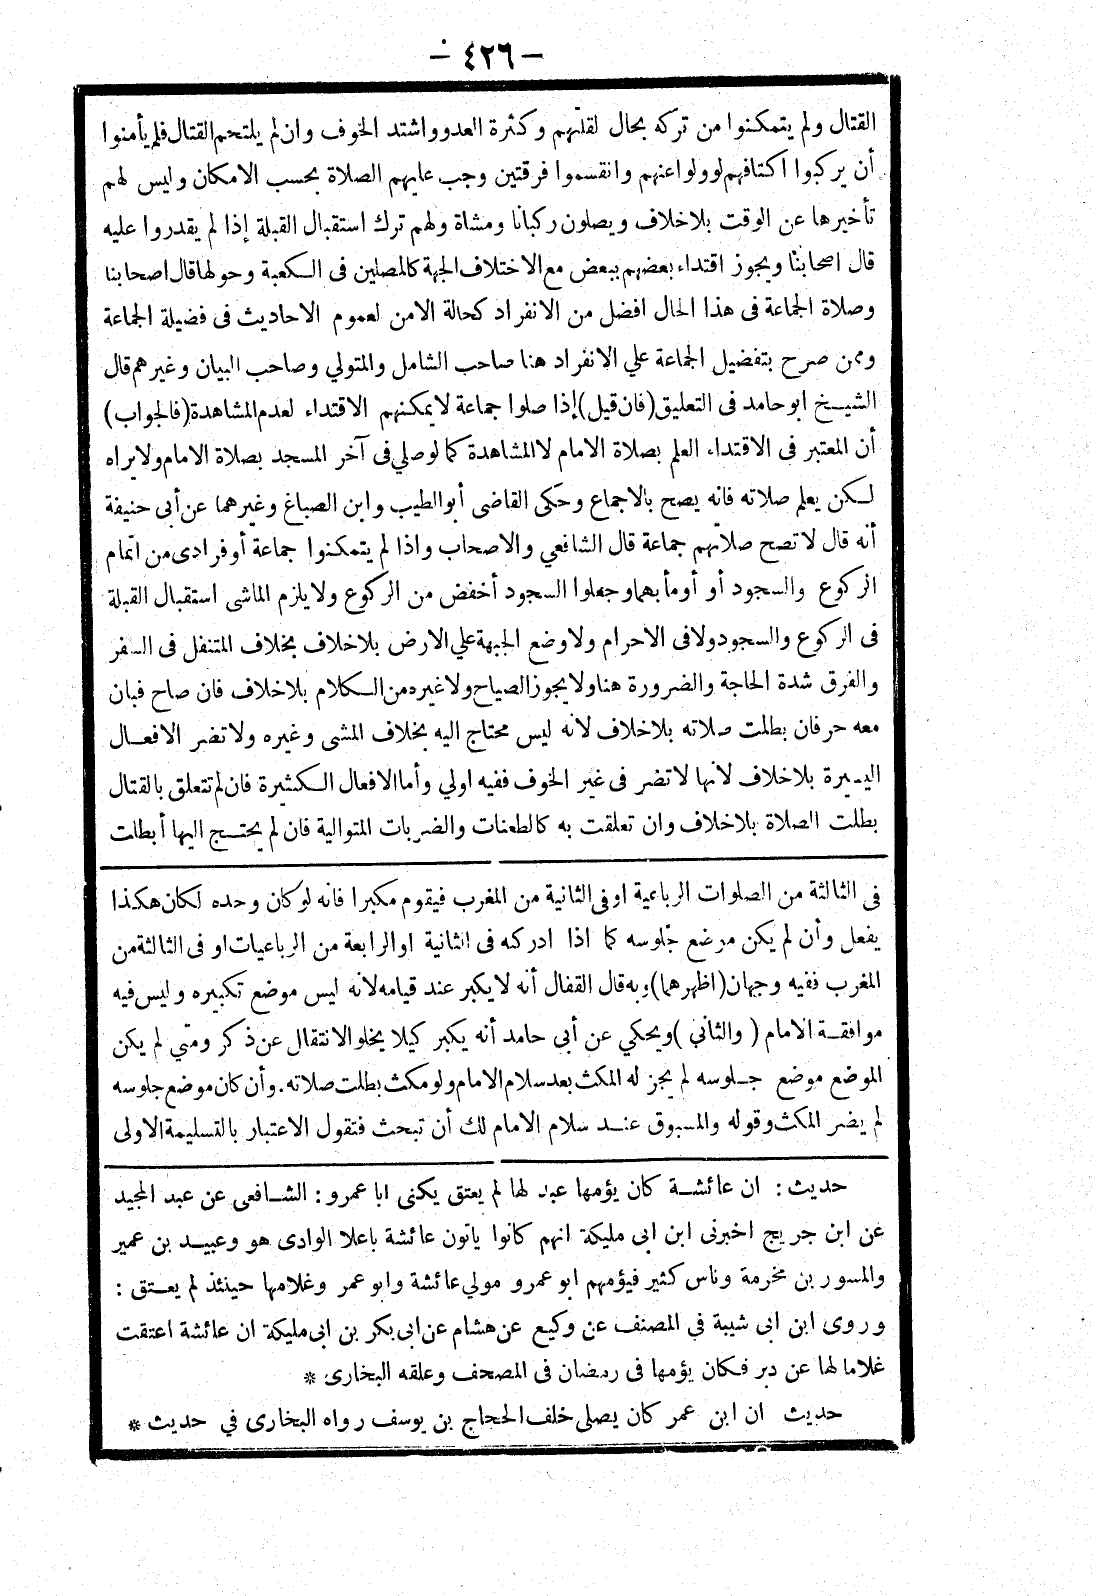 – ٤٢٦ –
القتال ولم يتمكنوا من تركه بحال لقلتهم وكثرة العدو واشتد الخوف وان لم يلتحم القتال فلم يأمنوا
أن يركبوا اكتافهم لو ولوا عنهم وانقسموا فرقتين وجب عليهم الصلاة بحسب الامكان وليس لهم
تأخيرها عن الوقت بلا خلاف ويصلون ركبانا ومشاة ولهم ترك استقبال القبلة إذا لم يقدروا عليه
قال اصحابنا ويجوز اقتداء بعضهم ببعض مع الاختلاف الجهة كالمصلين فى الكعبة وحولها قال اصحابنا
وصلاة الجماعة فى هذا الحال افضل من الانفراد كحالة الامن لعموم الاحاديث فى فضيلة الجماعة
وممن صرح بتفضيل الجماعة علي الانفراد هنا صاحب الشامل والمتولي وصاحب البيان وغيرهم قال
الشيخ ابو حامد فى التعليق (فان قيل) إذا صلوا جماعة لا يمكنهم الاقتداء لعدم المشاهدة (فالجواب)
أن المعتبر فى الاقتداء العلم بصلاة الامام لا المشاهدة كما لو صلي فى آخر المسجد بصلاة الامام ولا يراه
لكن يعلم صلاته فانه يصح بالاجماع وحكى القاضى أبو الطيب وابن الصباغ وغيرهما عن أبى حنيفة
أنه قال لا تصح صلاتهم جماعة قال الشافعي والاصحاب واذا لم يتمكنوا جماعة أو فرادى من اتمام
الركوع والسجود أو أومأ بهما وجعلوا السجود أخفض من الركوع ولا يلزم الماشى استقبال القبلة
فى الركوع والسجود ولا فى الاحرام ولا وضع الجبهة علي الارض بلا خلاف بخلاف المتنفل فى السفر
والفرق شدة الحاجة والضرورة هنا ولا يجوز الصياح ولا غيره من الكلام بلا خلاف فان صاح فبان
معه حرفان بطلت صلاته بلا خلاف لانه ليس محتاج اليه بخلاف المشى وغيره ولا تضر الافعال
اليسيرة بلا خلاف لانها لا تضر فى غير الخوف ففيه اولي وأما الافعال الكثيرة فان لم تتعلق بالقتال
بطلت الصلاة بلا خلاف وان تعلقت به كالطعنات والضربات المتوالية فان لم يحتج اليها أبطلت
فى الثالثة من الصلوات الرباعية اوفى الثانية من المغرب فيقوم مكبرا فانه لو كان وحده لكان هكذا
يفعل وأن لم يكن موضع جلوسه كما اذا ادركه فى الثانية او الرابعة من الرباعيات او فى الثالثة من
المغرب ففيه وجهان (اظهرهما) وبه قال القفال أنه لا يكبر عند قيامه لانه ليس موضع تكبيره وليس فيه
موافقة الامام (والثاني) ويحكي عن أبي حامد أنه يكبر كيلا يخلو الانتقال عن ذكر ومتي لم يكن
الموضع موضع جلوسه لم يجز له المكث بعد سلام الامام ولو مكث بطلت صلاته. وأن كان موضع جلوسه
لم يضر المكث وقوله والمسبوق عند سلام الامام لك أن تبحث فتقول الاعتبار بالتسليمة الاولى
حديث : ان عائشة كان يؤمها عبد لها لم يعتق يكنى ابا عمرو : الشافعى عن عبد المجيد
عن ابن جريج اخبرنى ابن ابى مليكة انهم كانوا ياتون عائشة باعلا الوادى هو وعبيد بن عمير
والمسور بن مخرمة وناس كثير فيؤمهم ابو عمرو مولي عائشة وابو عمر وغلامها حينئذ لم يعتق :
وروى ابن ابى شيبة في المصنف عن وكيع عن هشام عن ابى بكر بن ابى مليكة ان عائشة اعتقت
غلاما لها عن دبر فكان يؤمها فى رمضان فى المصحف وعلقه البخارى *
حديث ان ابن عمر كان يصلى خلف الحجاج بن يوسف رواه البخارى في حديث *